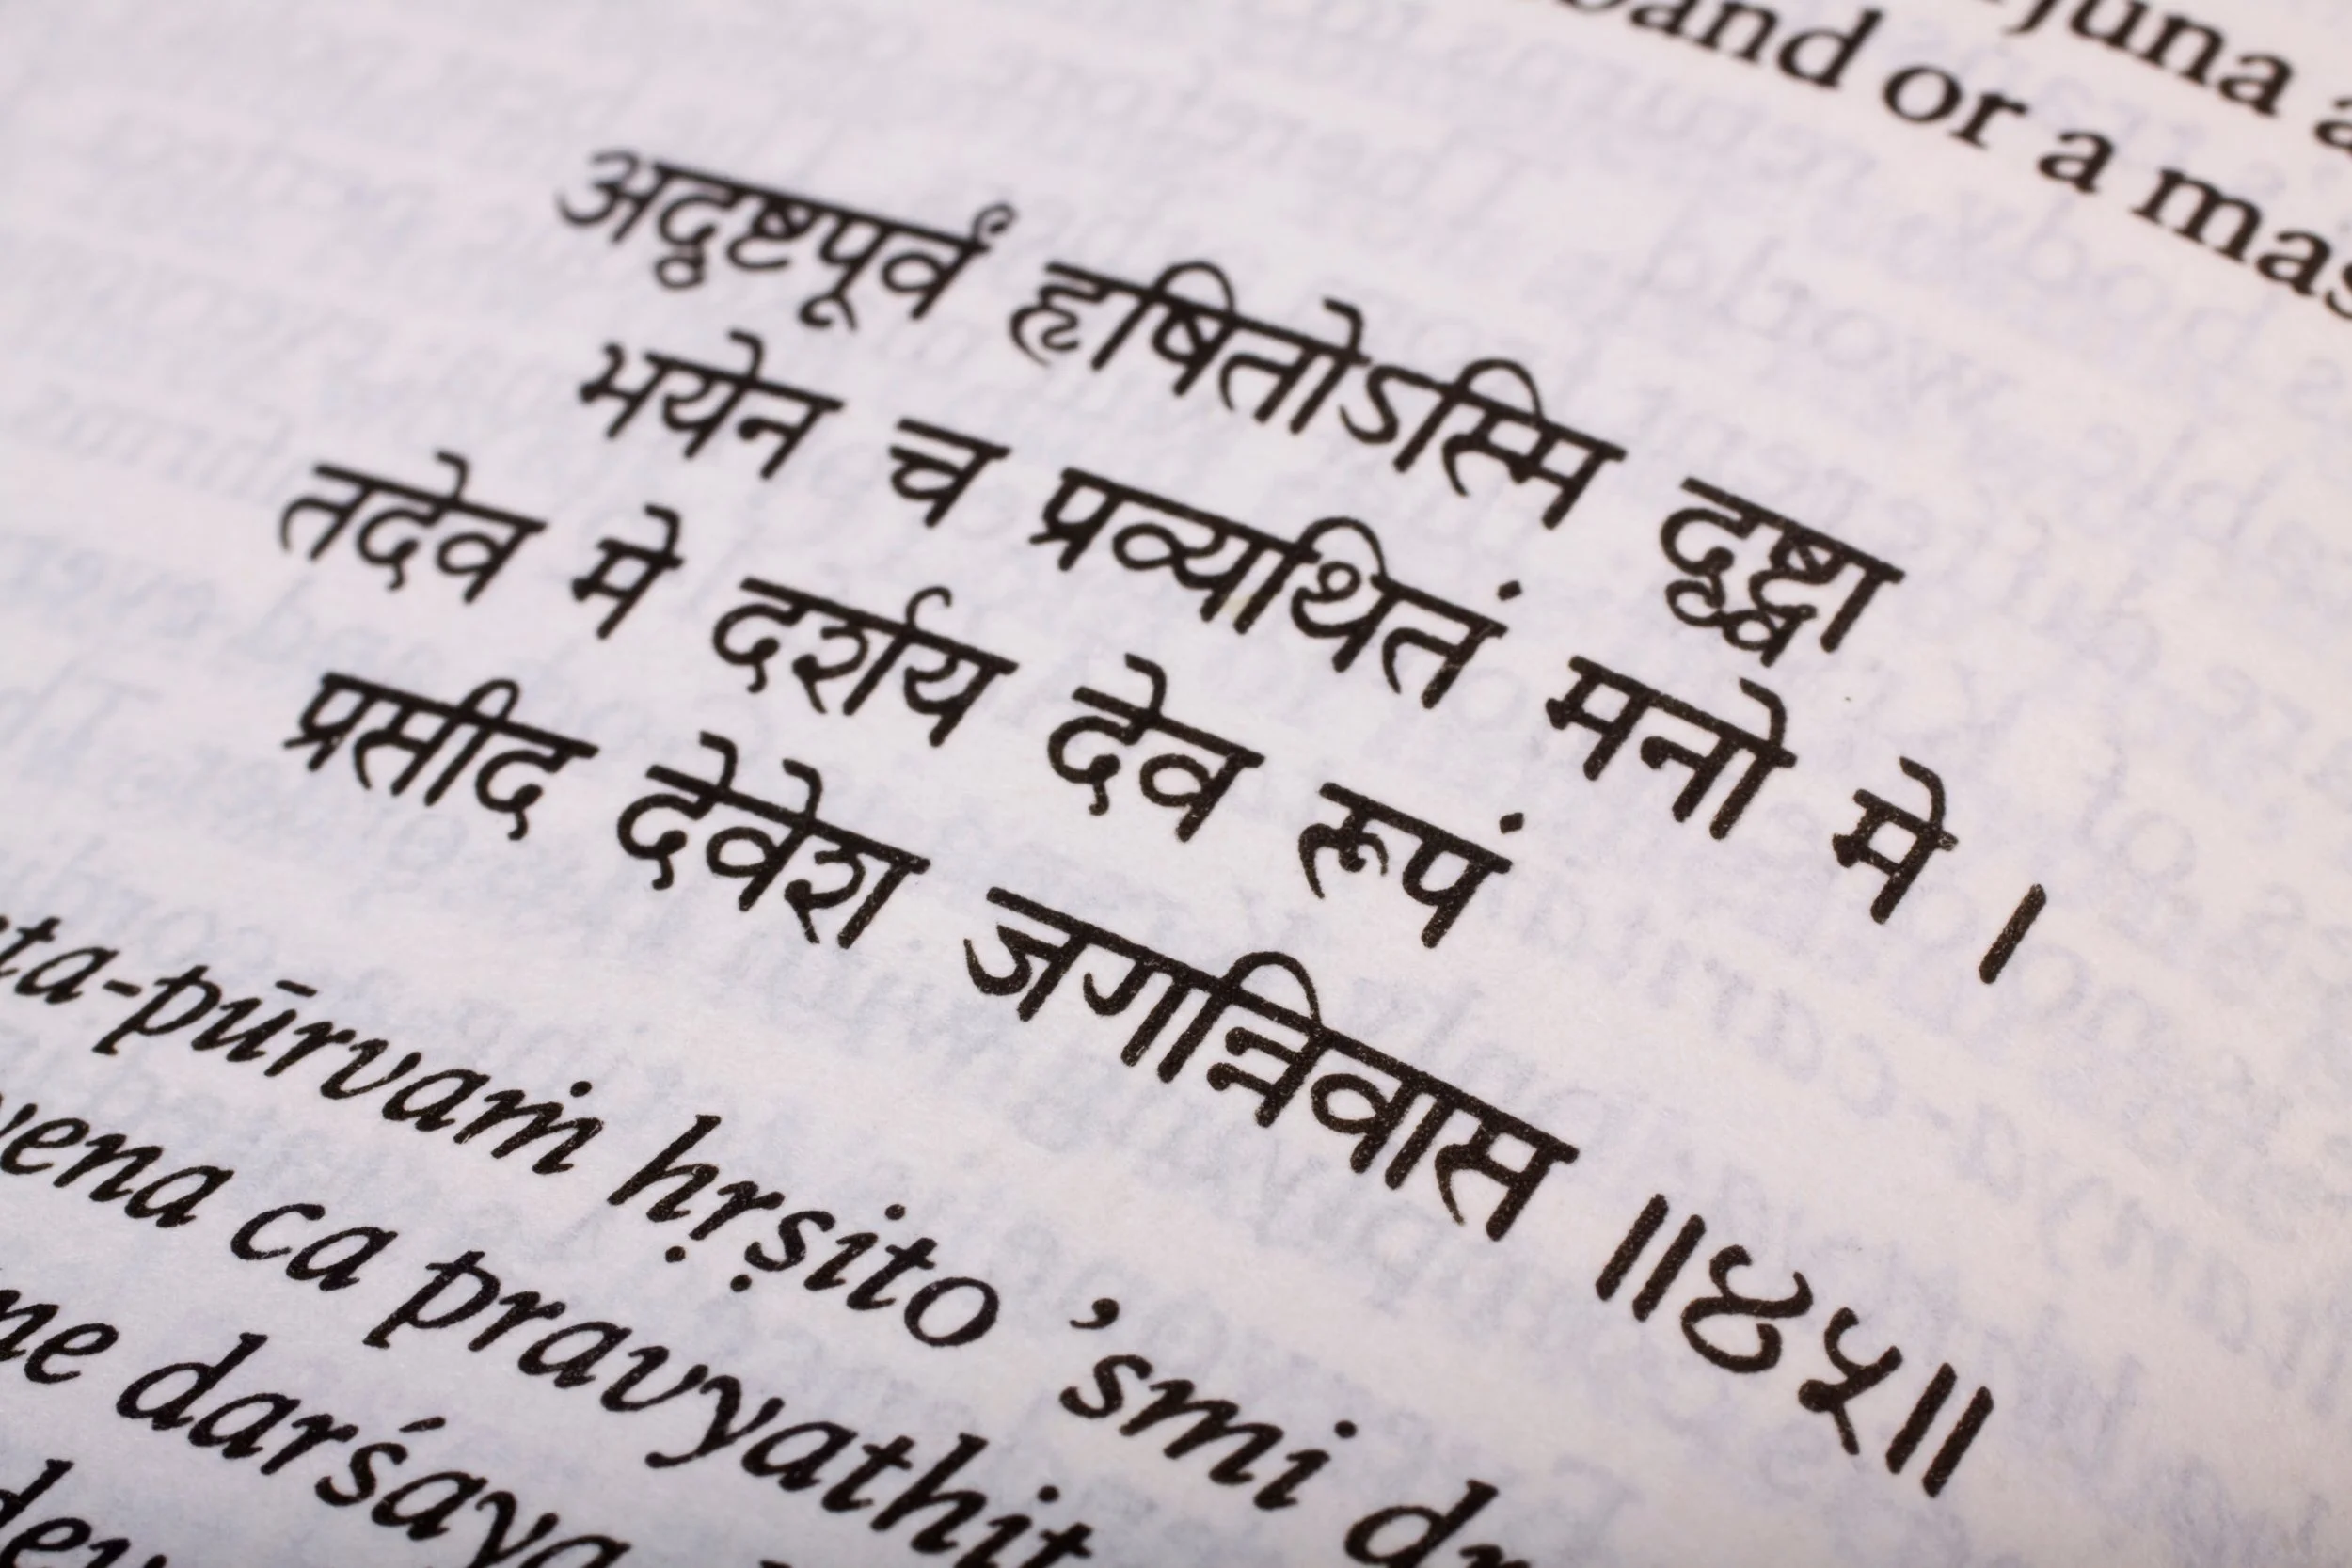 juna a
band or a mas
अदृष्टपूर्वं हृषितोऽस्मि दृष्ट्वा
भयेन च प्रव्यथितं मनो मे ।
तदेव मे दर्शय देव रूपं
प्रसीद देवेश जगन्निवास ॥४५॥
ta-pūrvaṁ hṛṣito ’smi dṛ
yena ca pravyathit
me darśaya
dev